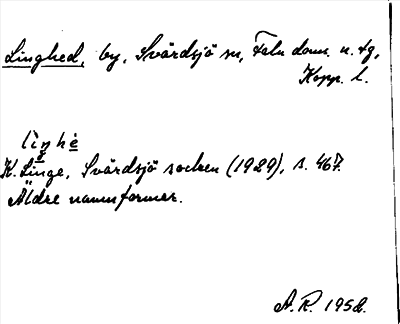 Linghed, by, Svärdsjö sn, Falu doms. u. tg,
Kopp. l.
lìŋhè
K. Linge, Svärdsjö socken (1929), s. 467.
Äldre namnformer.
A.R. 1958.